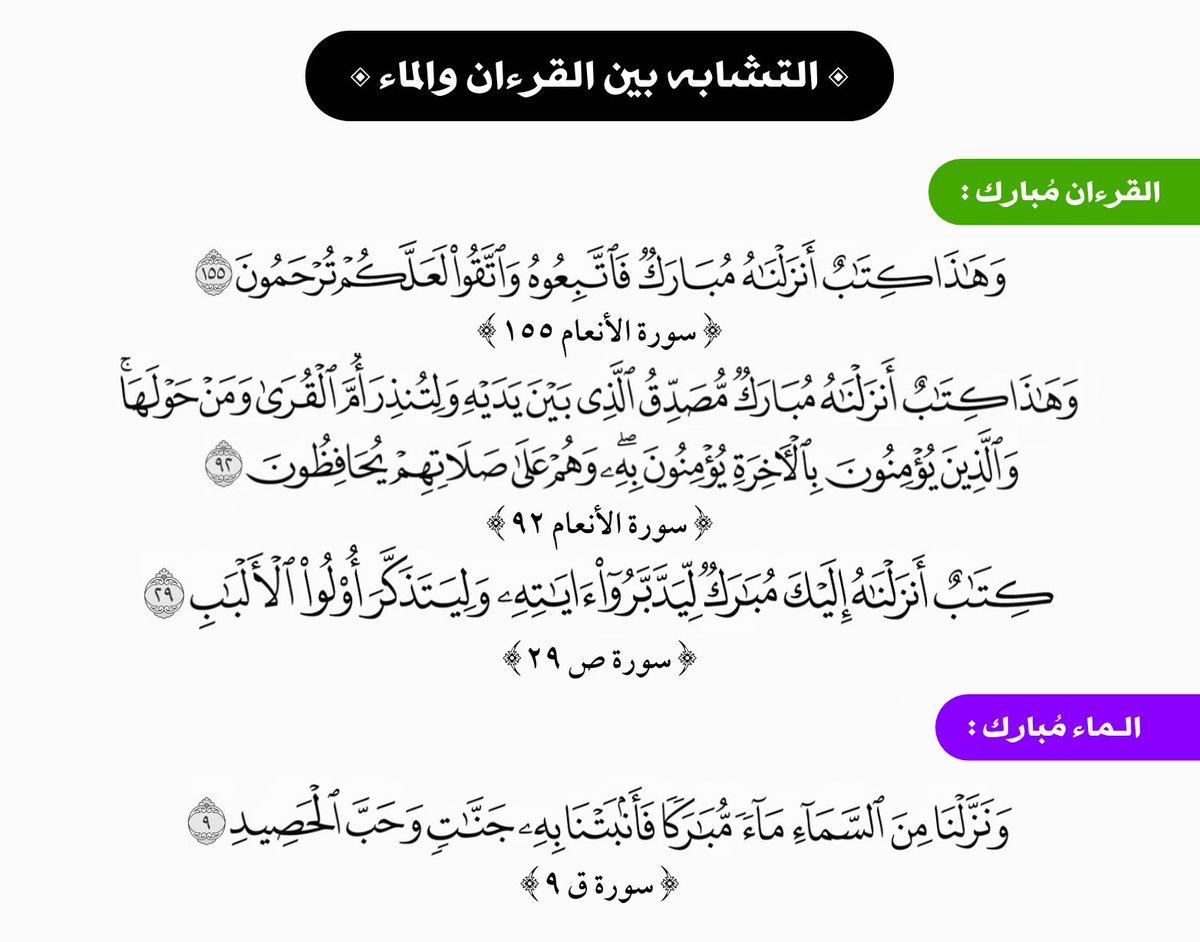 التشابه بين القرءان والماء
القرءان مُبارك :
وَهَٰذَا كِتَٰبٌ أَنزَلْنَٰهُ مُبَارَكٌ فَٱتَّبِعُوهُ وَٱتَّقُوا۟ لَعَلَّكُمْ تُرْحَمُونَ ١٥٥
﴿ سورة الأنعام ١٥٥ ﴾
وَهَٰذَا كِتَٰبٌ أَنزَلْنَٰهُ مُبَارَكٌ مُّصَدِّقُ ٱلَّذِى بَيْنَ يَدَيْهِ وَلِتُنذِرَ أُمَّ ٱلْقُرَىٰ وَمَنْ حَوْلَهَا ۚ
وَٱلَّذِينَ يُؤْمِنُونَ بِٱلْءَاخِرَةِ يُؤْمِنُونَ بِهِۦ ۖ وَهُمْ عَلَىٰ صَلَاتِهِمْ يُحَافِظُونَ ٩٢
﴿ سورة الأنعام ٩٢ ﴾
كِتَٰبٌ أَنزَلْنَٰهُ إِلَيْكَ مُبَٰرَكٌ لِّيَدَّبَّرُوٓا۟ ءَايَٰتِهِۦ وَلِيَتَذَكَّرَ أُو۟لُوا۟ ٱلْأَلْبَٰبِ ٢٩
﴿ سورة ص ٢٩ ﴾
الـماء مُبارك :
وَنَزَّلْنَا مِنَ ٱلسَّمَآءِ مَآءً مُّبَٰرَكًا فَأَنۢبَتْنَا بِهِۦ جَنَّٰتٍ وَحَبَّ ٱلْحَصِيدِ ٩
﴿ سورة ق ٩ ﴾